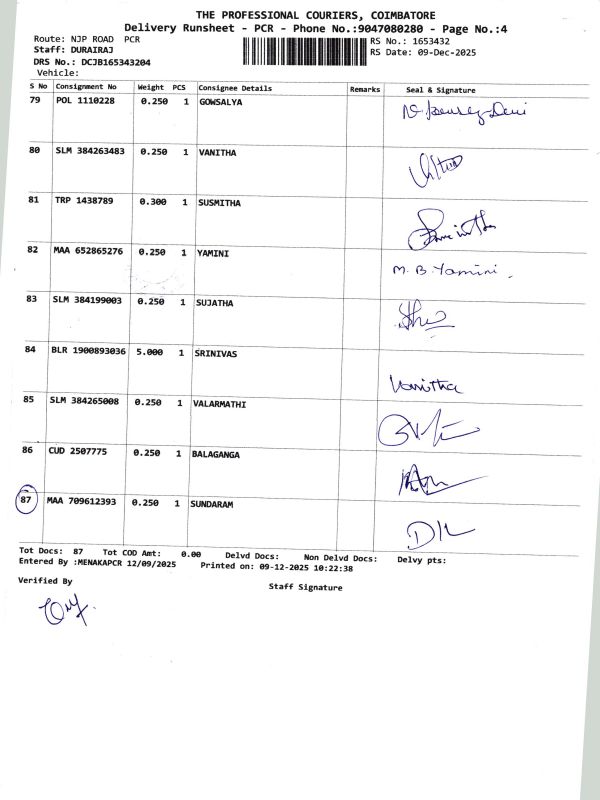 THE PROFESSIONAL COURIERS, COIMBATORE
Delivery Runsheet - PCR - Phone No.:9047080280 - Page No.:4
Route: NJP ROAD PCR
RS No.: 1653432
Staff: DURAIRAJ
RS Date: 09-Dec-2025
DRS No.: DCJB165343204
Vehicle:
S No Consignment No Weight PCS Consignee Details Remarks Seal & Signature
79 POL 1110228 0.250 1 GOWSALYA
80 SLM 384263483 0.250 1 VANITHA
81 TRP 1438789 0.300 1 SUSMITHA
82 MAA 652865276 0.250 1 YAMINI M.B.Yamini.
83 SLM 384199003 0.250 1 SUJATHA
84 BLR 1900893036 5.000 1 SRINIVAS Vanitha
85 SLM 384265008 0.250 1 VALARMATHI
86 CUD 2507775 0.250 1 BALAGANGA
87 MAA 709612393 0.250 1 SUNDARAM
Tot Docs: 87 Tot COD Amt: 0.00 Delvd Docs: Non Delvd Docs: Delvy pts:
Entered By :MENAKAPCR 12/09/2025 Printed on: 09-12-2025 10:22:38
Verified By
Staff Signature